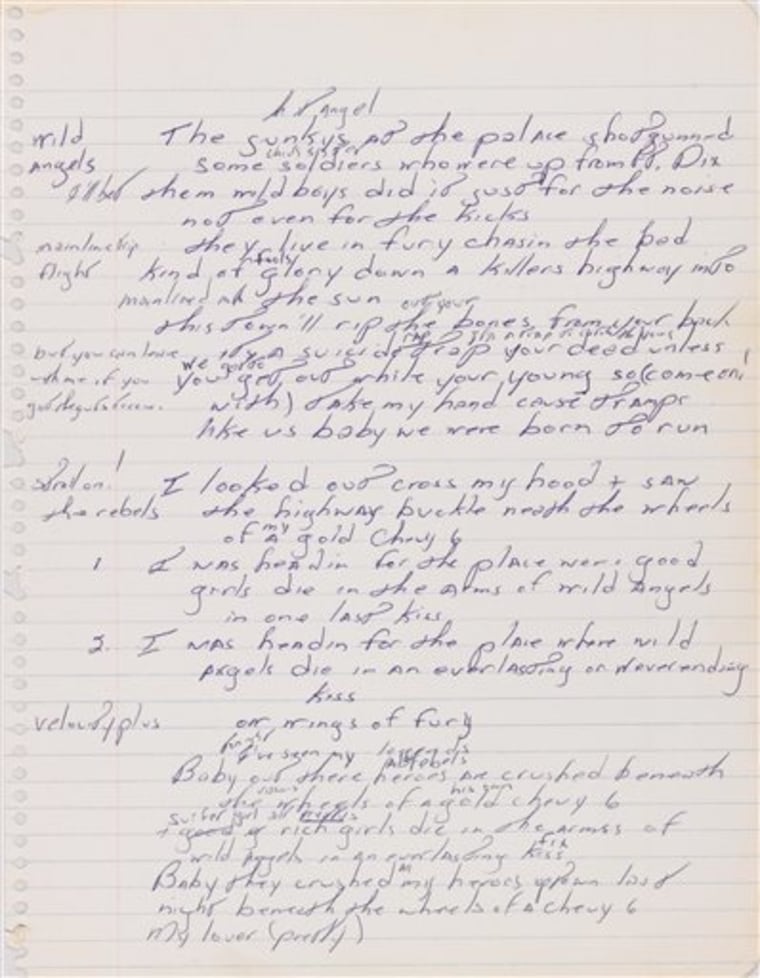 Angel
wild The junkys at the palace shotgunned
angels some soldiers who were up from Ft. Dix
them wild boys did it just for the noise
not even for the kicks
they live in fury chasin the bad
flight kind of glory down a killers highway into
mainlined the sun
out your
this town'll rip the bones from your back
but you can leave it's a suicide trap your dead unless
we gotta
with me if you you get out while your young so (come on!
with) take my hand cause tramps
like us baby we were born to run
I looked out cross my hood + saw
the rebels the highway buckle neath the wheels
my
of a gold Chevy 6
1. I was headin for the place were good
girls die in the arms of wild Angels
in one last kiss
2. I was headin for the place where wild
angels die in an everlasting or neverending
kiss
velocity plus on wings of fury
I've seen my
rebels
Baby out there heroes are crushed beneath
his own
the wheels of a gold chevy 6
+ good rich girls die in the armss of
wild Angels in an everlasting kiss
Baby they crushed my heroes uptown last
night beneath the wheels of a chevy 6
My lover (pretty)